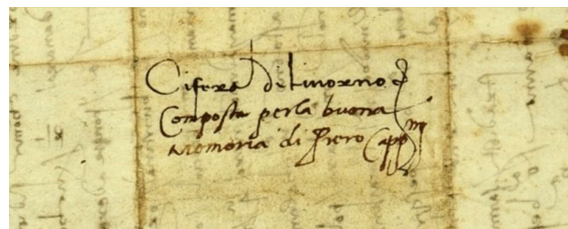 Cifera di livorno e
Composta per la buona
Memoria di Piero Capp^ni